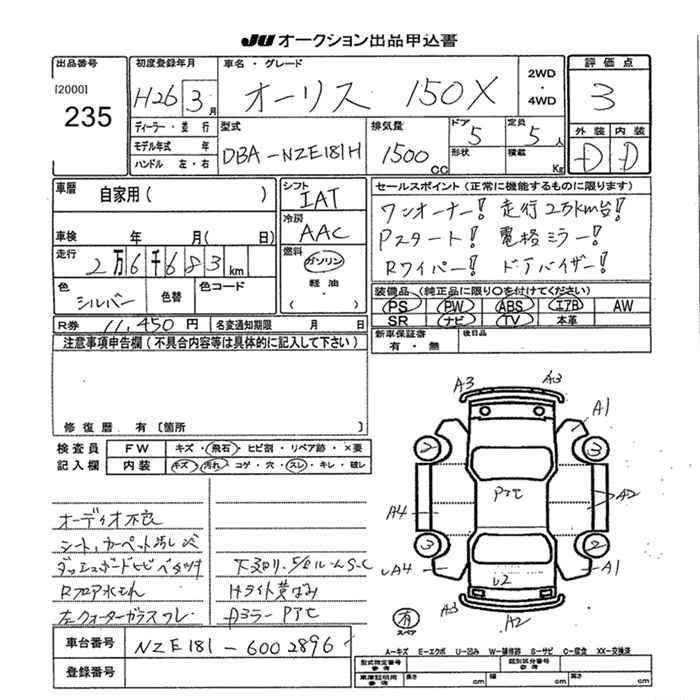 JU オークション出品申込書
出品番号
[2000]
235
初度登録年月
H26 3 月
車名・グレード
オーリス 150X
2WD
・
4WD
評価点
3
外装 内装
D D
ディーラー・並行
モデル年式 年
ハンドル 左・右
型式
DBA-NZE181H
排気量
1500 CC
ドア 5
形状
定員 5 人
積載 Kg
車歴
自家用( )
車検 年 月( 日)
走行
2万6千683 km
色
シルバー
色替
色コード
シフト
IAT
冷房
AAC
燃料
ガソリン
軽油
( )
セールスポイント(正常に機能するものに限ります)
ワンオーナー! 走行2万km台!
Pスタート! 電格ミラー!
Rワイパー! ドアバイザー!
装備品(純正品に限り○を付けてください)
PS PW ABS エアB AW
SR ナビ TV 本革
R券 11,450 円
名変通知期限 月 日
新車保証書
有・無
後日品
注意事項申告欄(不具合内容等は具体的に記入して下さい)
修復歴 有〔箇所 〕
検査員
記入欄
FW キズ・飛石・ヒビ割・リペア跡・×要
内装 キズ・汚れ・コゲ・穴・スレ・キレ・破レ
オーディオ不良
シート、カーペット汚レ
ダッシュボードヒビ ベタツキ
Rフロア水もれ
左クォーターガラスワレ
下廻り
Hライト黄ばみ
Pアセ
A3 A3
A1
3 3
Pアセ
A4 A2
3 2
A4 A1
A3 A2
有
スペア
A-キズ E-エクボ U-凹み W-補修跡 S-サビ C-腐食 XX-交換済
車台番号 NZE181-6002896
登録番号
型式指定番号
参考
類別区分番号
参考
車庫証明用
参考
長さ cm 幅 cm 高さ cm